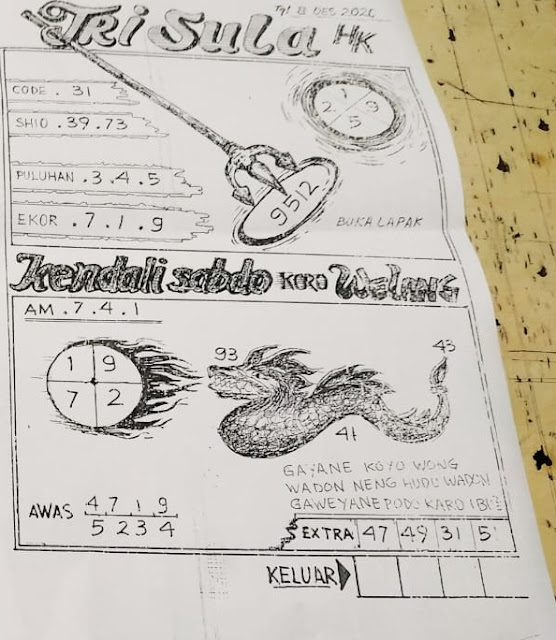 TRI SULA HK
Tgl 8 DES 2020
CODE . 31
SHIO . 39.73
PULUHAN . 3 . 4 . 5
EKOR . 7 . 1 . 9
1
2 9
5
9512
BUKA LAPAK
Kendali sabdo KORO WELANG
AM . 7 . 4 . 1
1 9
7 2
93
43
41
GAYANE KOYO WONG
WADON NENG HUDU WADON
GAWEYANE PODO KARO
AWAS 4 7 1 9
5 2 3 4
EXTRA 47 49 31 5
KELUAR